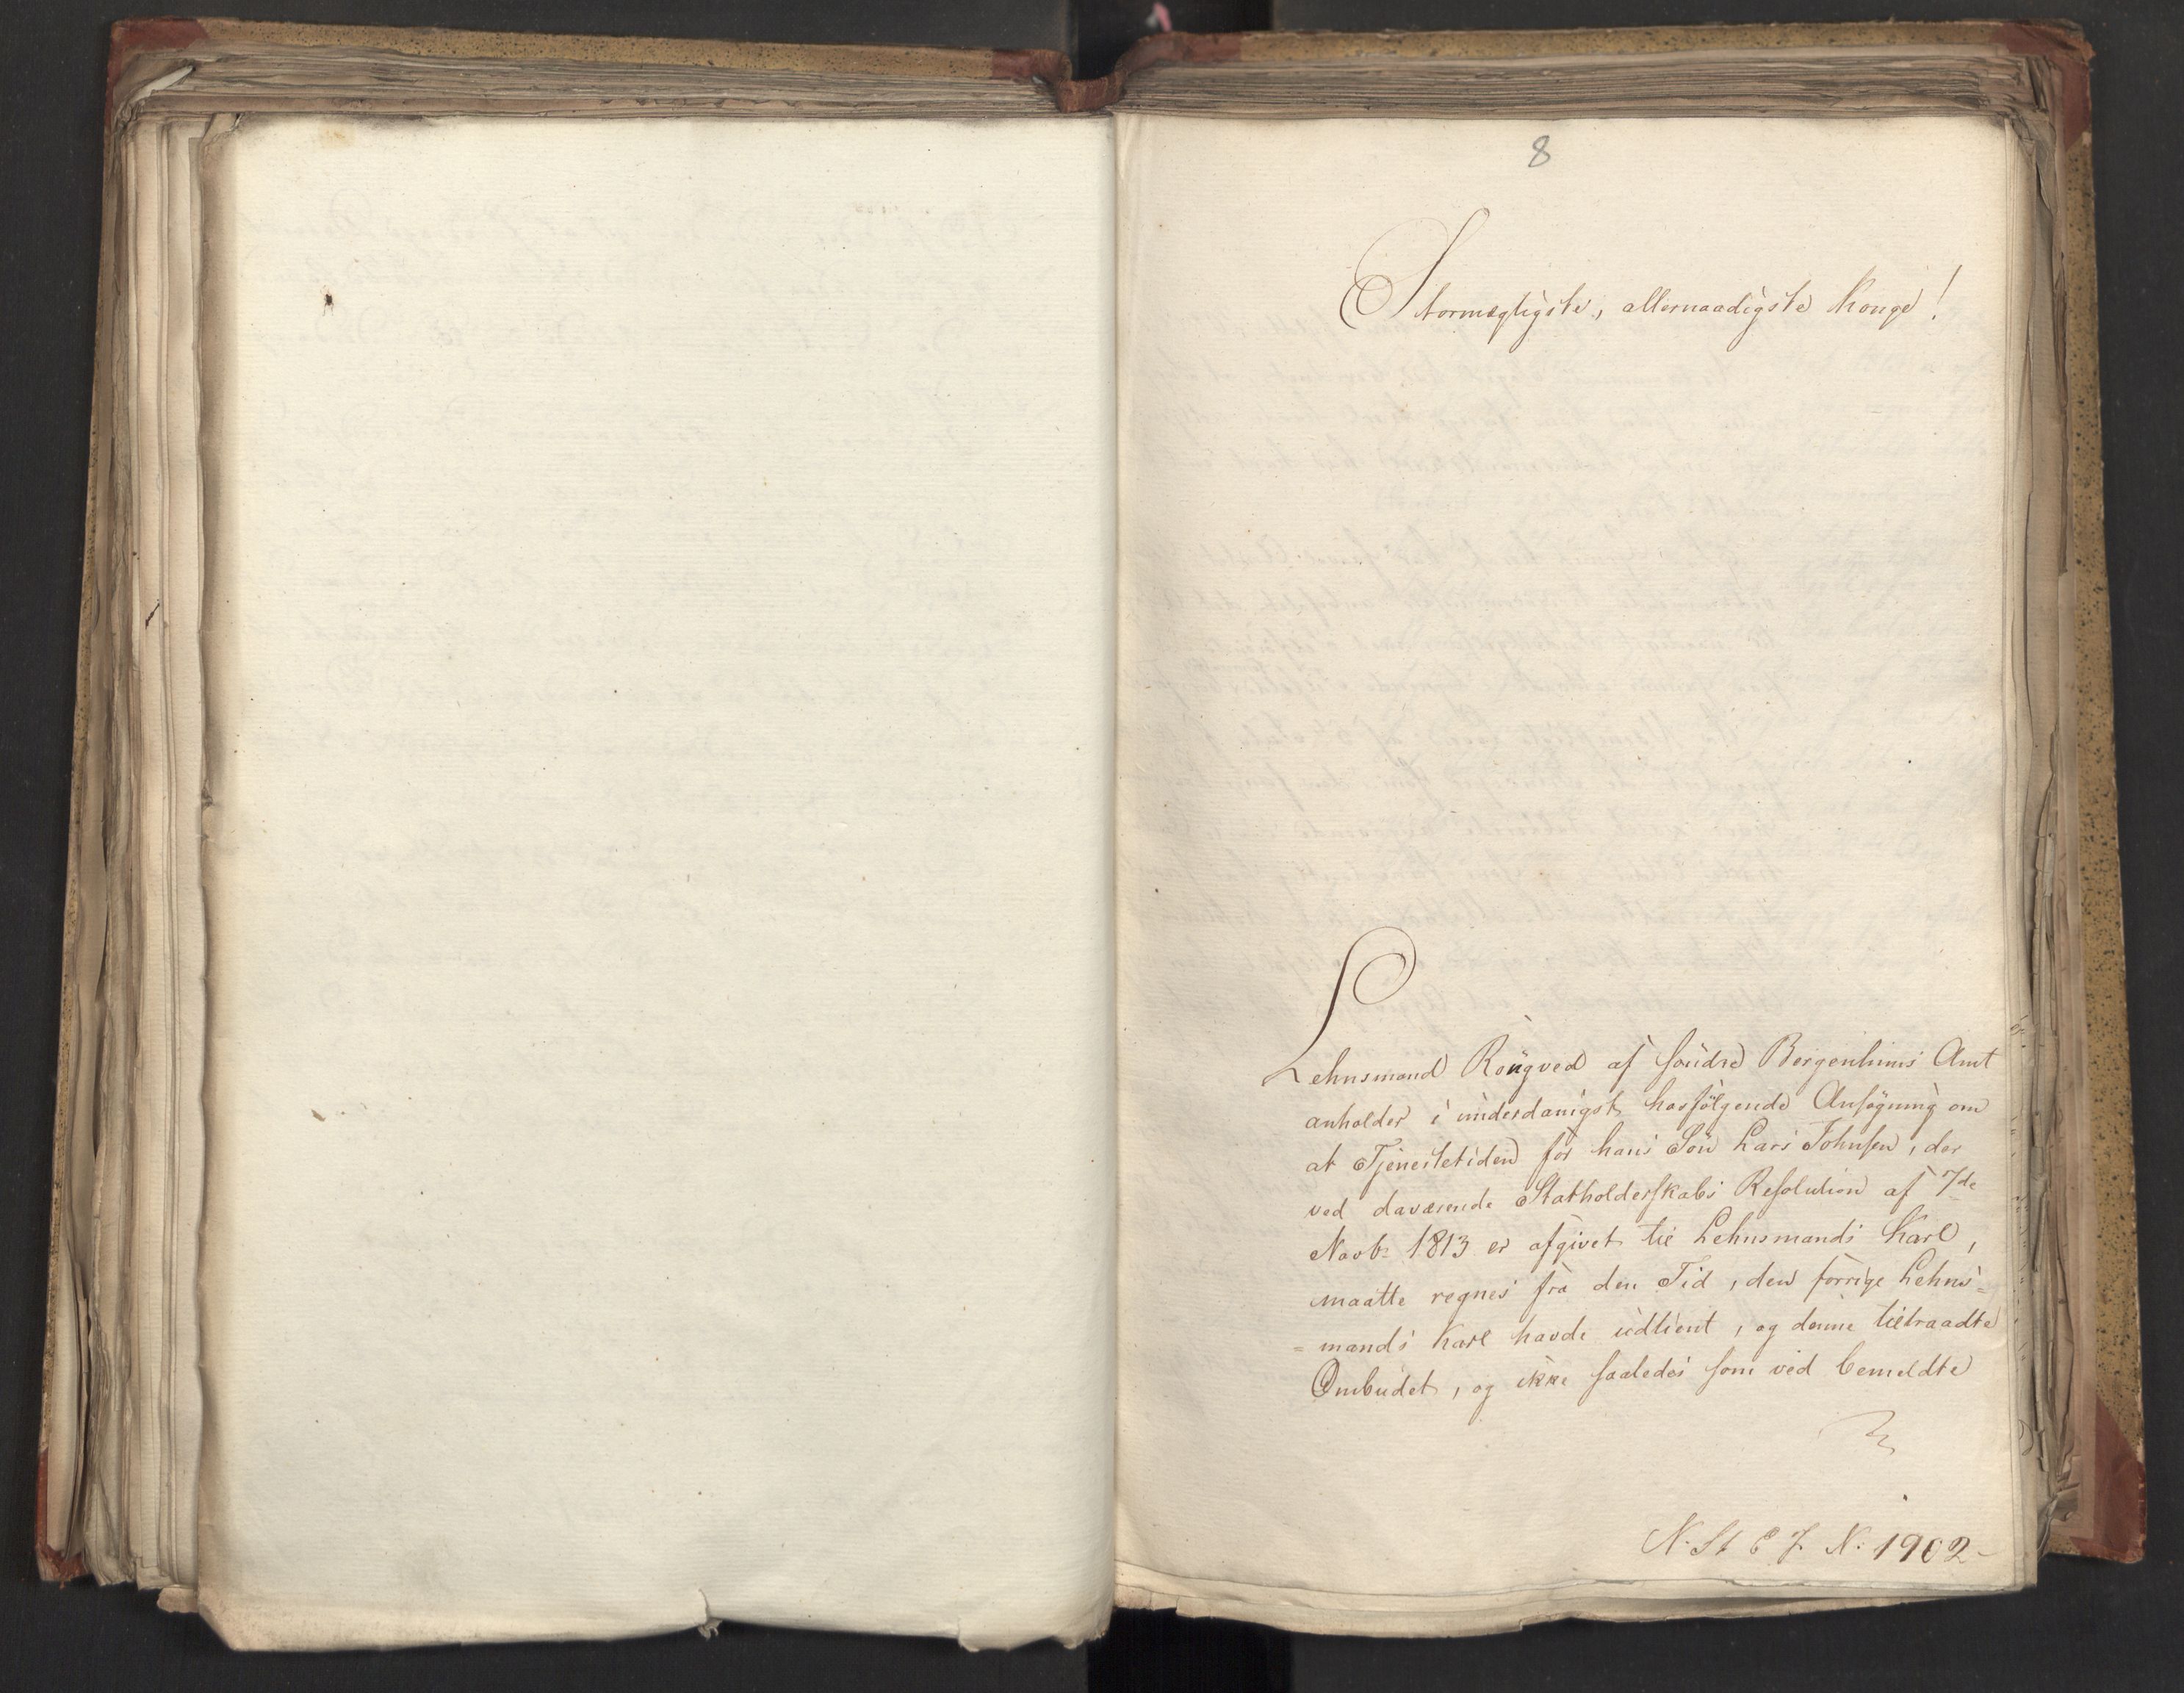 8
Stormægtigste, allernaadigste Konge!
Lehnsmand Röngved af söndre Bergenhuus Amt
anholder i underdanigst hosfølgende Ansøgning om
at Tjenestetiden for hans Søn Lars Johnsen, der
ved daværende Statholderskabs Resolution af 7de
Novbr 1813 er afgivet til Lehnsmands Karl,
maatte regnes fra den Tid, den forrige Lehns=
=mands Karl havde udtient, og denne tiltraadte
Ombudet, og ikke saaledes som ved bemeldte
N. St. E J. N: 1902